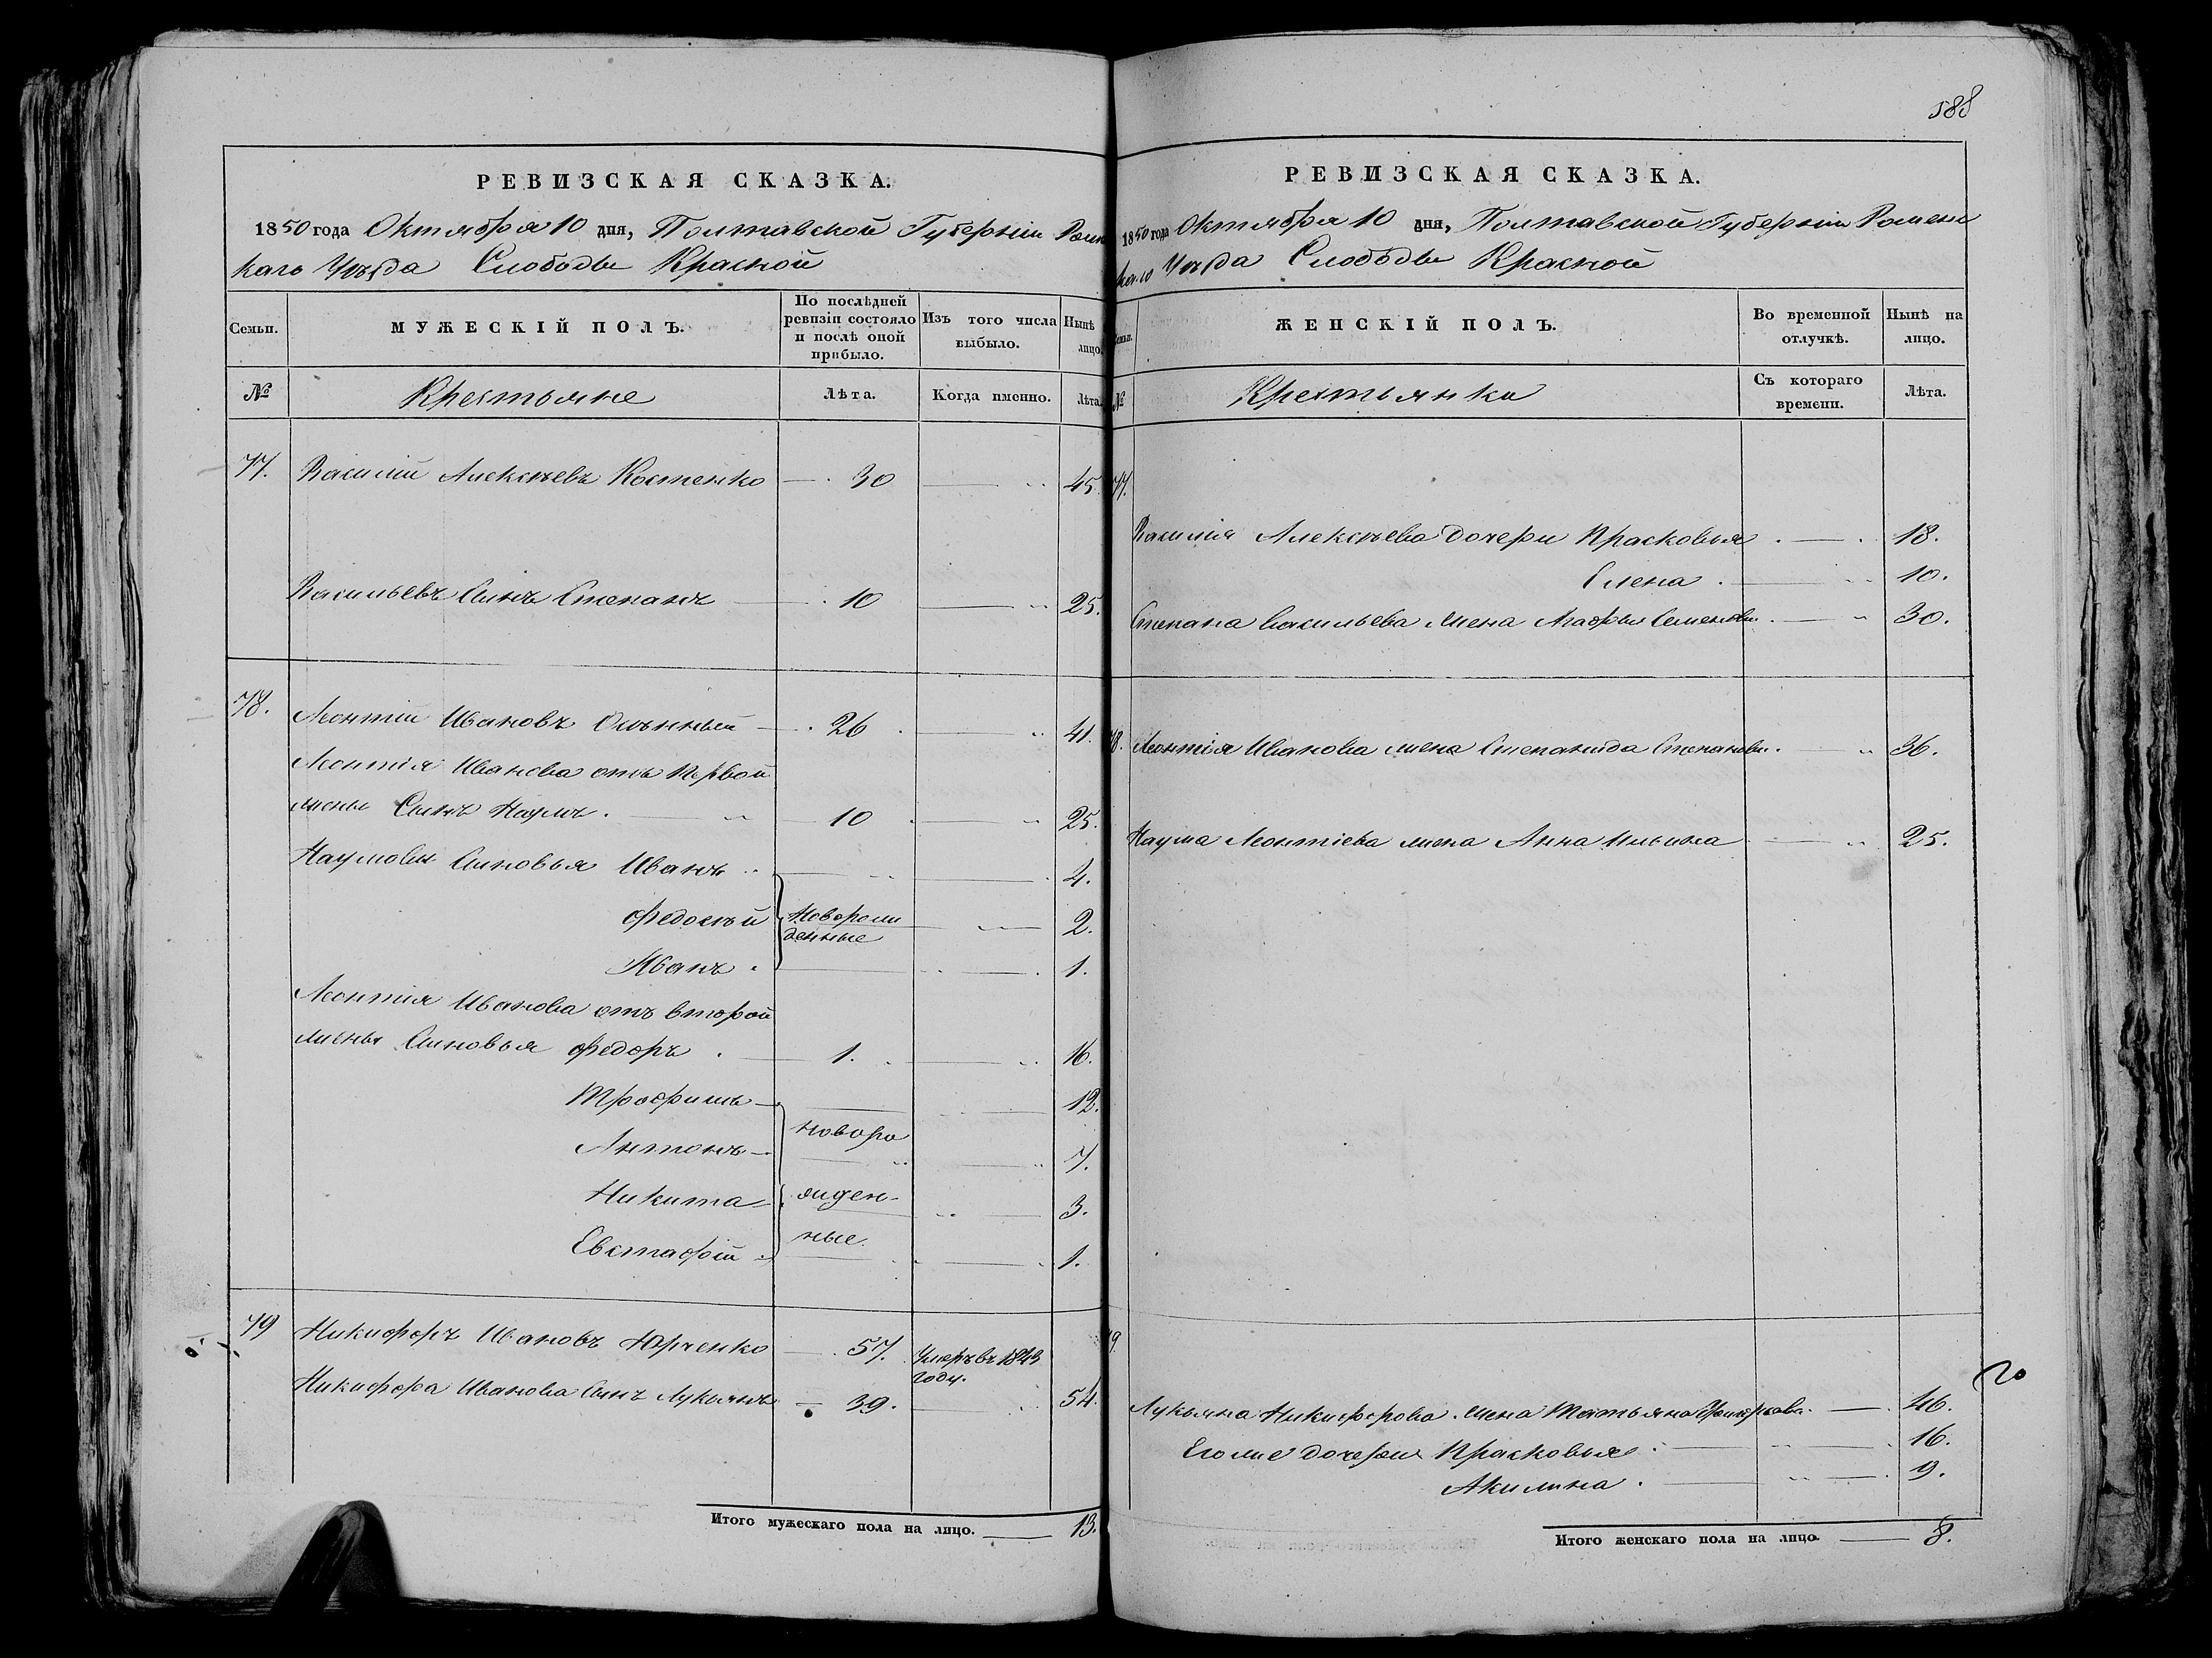 РЕВИЗСКАЯ СКАЗКА.
1850 года Октября 10 дня, Полтавской Губерніи Роменс
каго Уѣзда Слободы Красной
Семьи.
МУЖЕСКІЙ ПОЛЪ.
По послѣдней ревизіи состояло и послѣ оной прибыло.
Изъ того числа выбыло.
Нынѣ лицо.
№
Крестьяне
Лѣта.
Когда именно.
Лѣта.
77. Василій Алексѣевъ Костенко 30 45.
Васильевъ Сынъ Степанъ 10 25.
78. Леонтій Ивановъ 26 41.
Леонтія Иванова отъ первой
жены Сынъ Наумъ. 10 25.
Наумовы Сыновья Иванъ 4.
Федосѣй Новорож 2.
денные
Иванъ 1.
Леонтія Иванова отъ второй
жены Сыновья Федоръ 1. 16.
Трофимъ 12.
новоро
Антонъ 7.
Никита жден- 3.
ные.
Евстафій 1.
79 Никифоръ Ивановъ Юрченко 57. Умеръ въ 1843
году.
Никифора Иванова Сынъ Лукьянъ 39. 54.
Итого мужескаго пола на лицо. 13.
188
РЕВИЗСКАЯ СКАЗКА.
1850 года Октября 10 дня, Полтавской Губерніи Роменс
каго Уѣзда Слободы Красной
Семьи.
ЖЕНСКІЙ ПОЛЪ.
Во временной отлучкѣ.
Нынѣ на лицо.
№
Крестьянки
Съ котораго времени.
Лѣта.
77.
Василія Алексѣева дочери Прасковья 18.
Елена 10.
Степана Васильева жена Агафья Семенова 30.
78. Леонтія Иванова жена Степанида Степанова. 36.
Наума Леонтіева жена Анна Ильина 25.
79.
Лукьяна Никифорова жена Татьяна 46.
Его же дочери Прасковья 16.
Акилина 9.
Итого женскаго пола на лицо. 8.